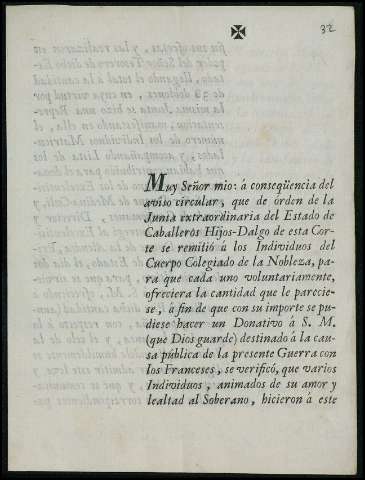 ✠
32
Muy Señor mio: á conseqüencia del
aviso circular, que de órden de la
Junta extraordinaria del Estado de
Caballeros Hijos-Dalgo de esta Cor-
te se remitió á los Individuos del
Cuerpo Colegiado de la Nobleza, pa-
ra que cada uno voluntariamente,
ofreciera la cantidad que le parecie-
se, á fin de que con su importe se pu-
diese hacer un Donativo á S. M.
(que Dios guarde) destinado á la cau-
sa pública de la presente Guerra con
los Franceses, se verificó, que varios
Individuos, animados de su amor y
lealtad al Soberano, hicieron á este